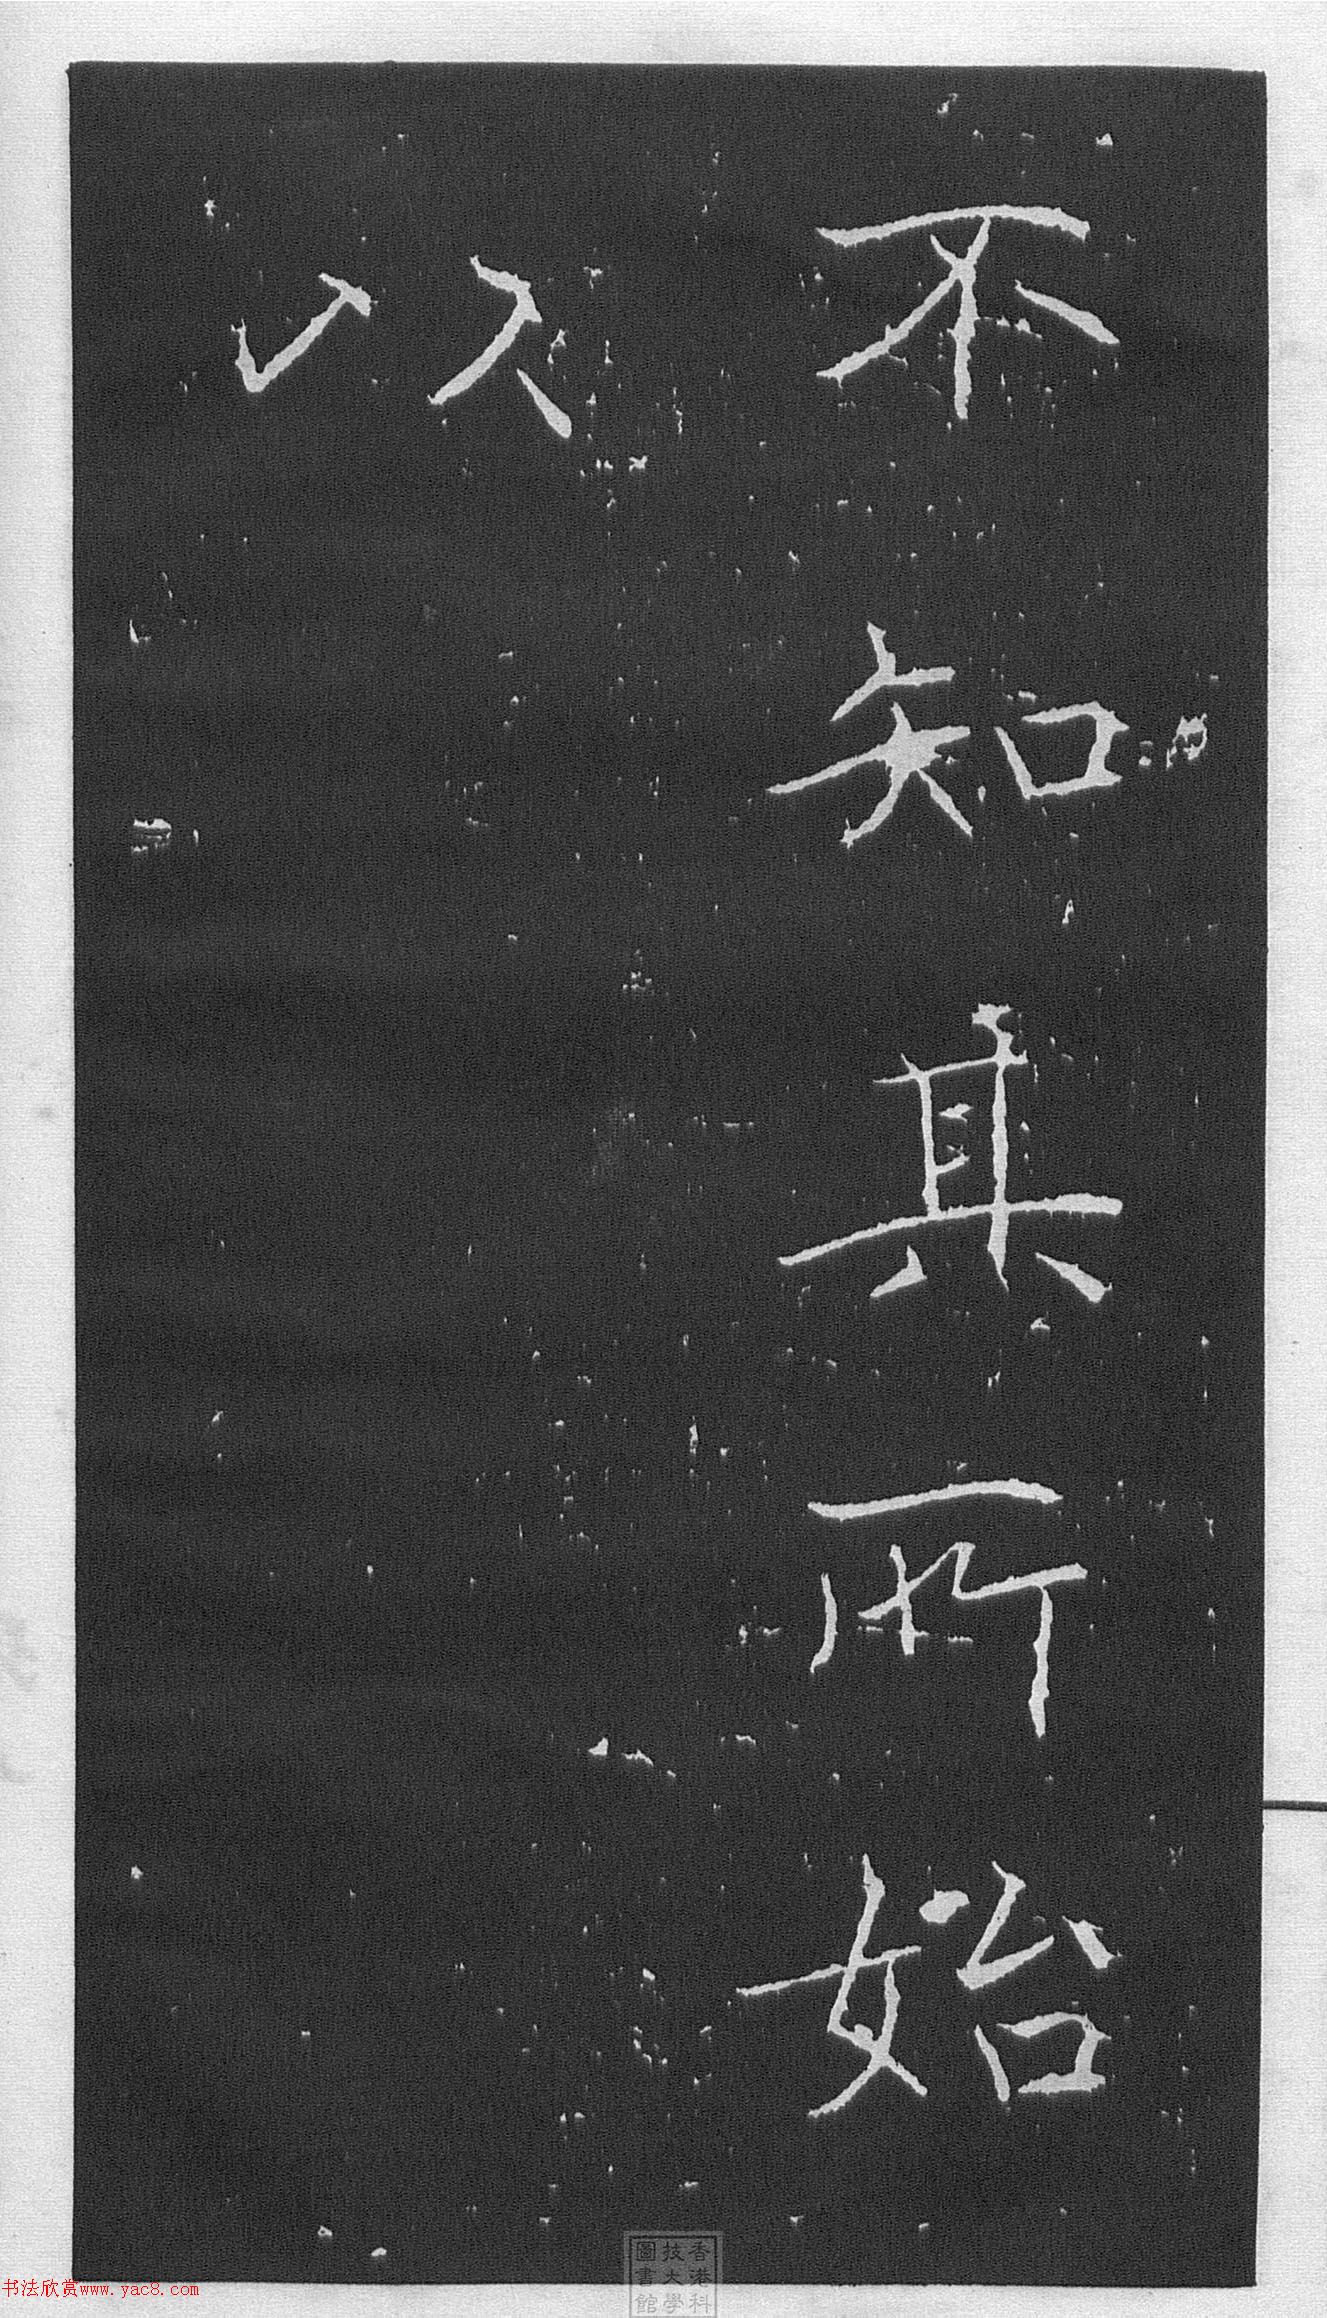 不知其所始
以
香港科
技大學
圖書館
书法欣赏www.yac8.com